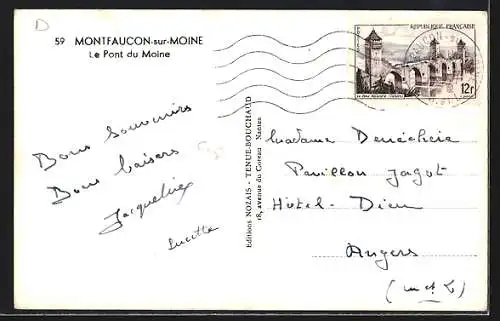 D
59 MONTFAUCON-sur-MOINE
Le Pont du Moine
RÉPUBLIQUE FRANÇAISE
12f
Bons souvenirs
Bons baisers
Jacqueline
Lucette
Editions NOZAIS - TENUE-BOUCHAUD
18, avenue du Coteau Nantes
Madame Denéchère
Pavillon Jagot
Hôtel-Dieu
Angers
(M et L)